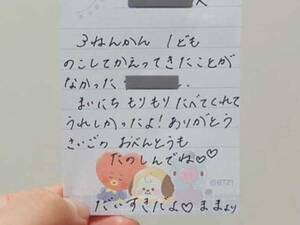 へ
3ねんかん 1ども
のこしてかえってきたことが
なかった
まいにち もりもり たべてくれて
うれしかったよ! ありがとう
さいごの おべんとうも
たのしんでね♡♡
©BT21
だいすきだよ♡ ままより